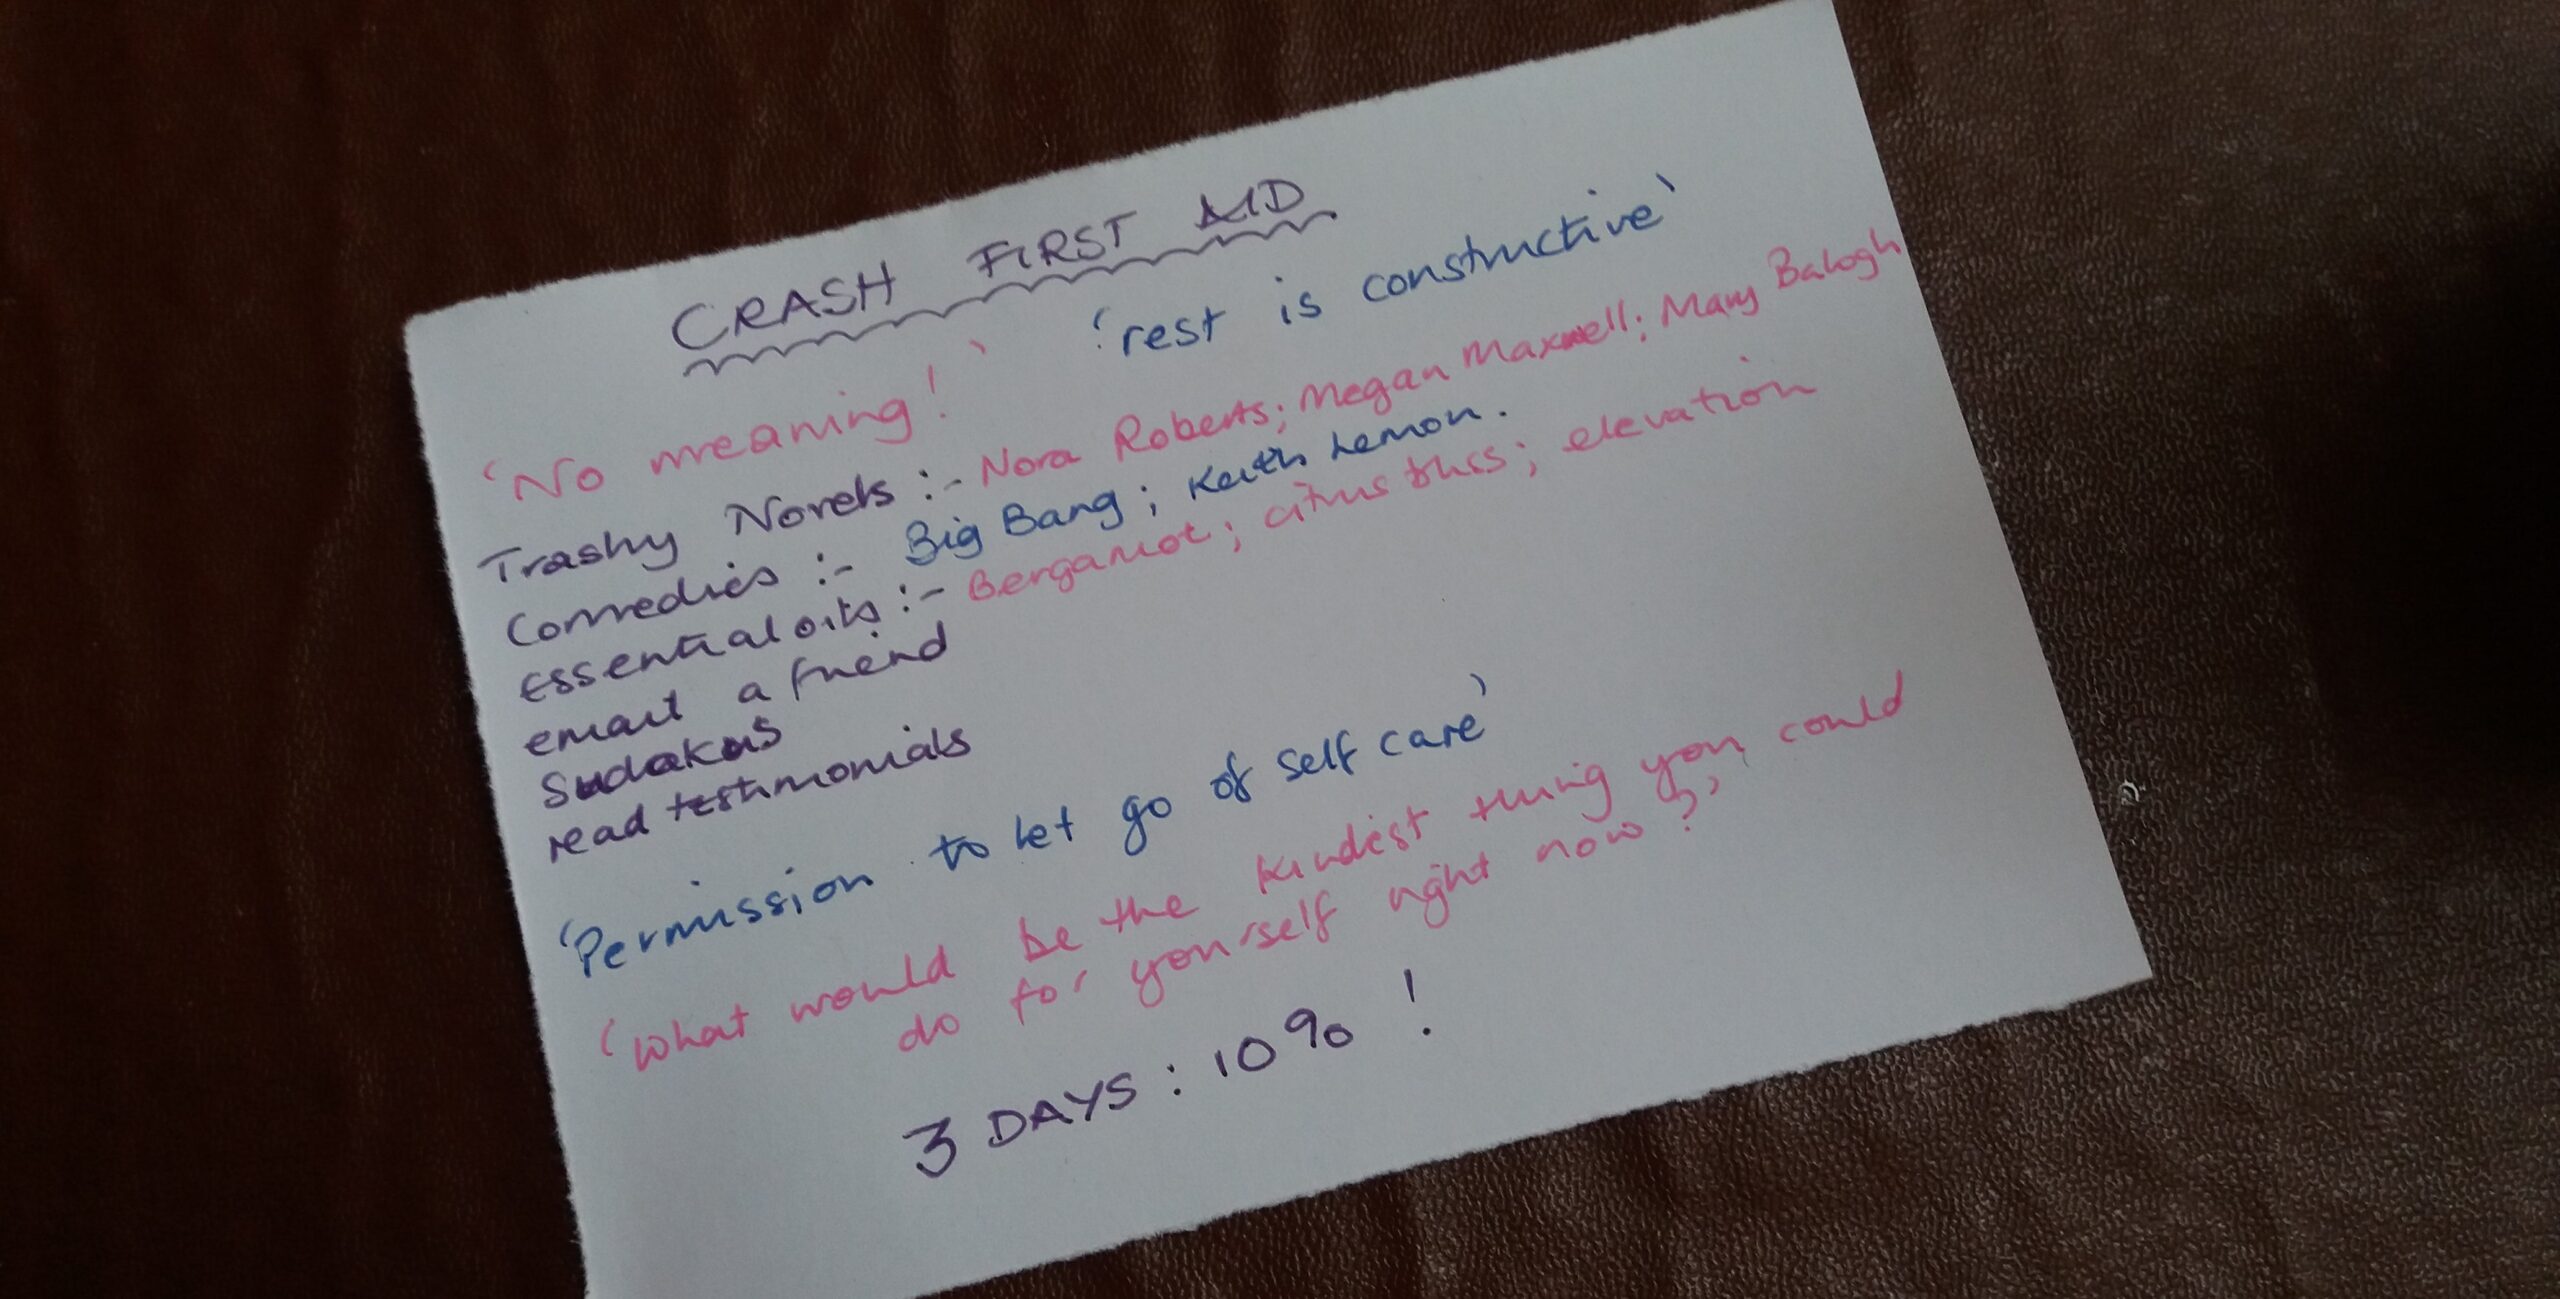 CRASH FIRST AID
'No meaning!' 'rest is constructive'
Trashy Novels :- Nora Roberts; Megan Maxwell; Mary Balogh
Comedies :- Big Bang; Keith Lemon.
Essential oils :- Bergamot; citrus bliss; elevation
email a friend
Sudokus
read testimonials
'Permission to let go of self care'
'What would be the kindest thing you could
do for yourself right now?'
3 DAYS : 10% !